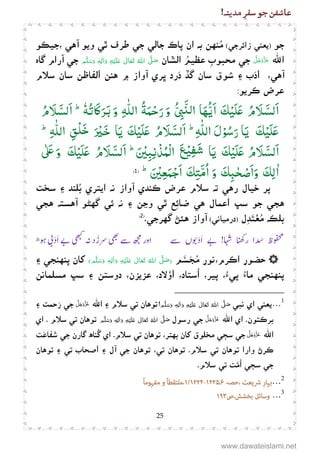 عاشقن جو سفرِ مدينہ!
جو (يعني زائرجي) مُنهن بہ ان پاڪ جالي جي طرف ٿي ويو آهي ،جيڪو
الله عَزَّوَجَلَّ جي محبوبِ عظيمُ الشان صَلَّى اللهُ تَعَالٰى عَلَيْهِ وَاٰلِهٖ وَسَلَّم جي آرام گاه
آهي، ادَب ۽ شوق سان گڏ دَرد ڀري آواز ۾ هنن الفاظن سان سلام
عرض ڪريو:
اَلسَّلَامُ عَلَيْكَ اَيُّهَا النَّبِيُّ وَرَحْمَةُ اللهِ وَبَرَكَاتُهٗ ؕ اَلسَّلَامُ
عَلَيْكَ يَا رَسُوْلَ اللهِ ؕ اَلسَّلَامُ عَلَيْكَ يَا خَيْرَ خَلْقِ اللهِ ؕ
اَلسَّلَامُ عَلَيْكَ يَا شَفِيْعَ الْمُذْنِبِيْنَ ؕ اَلسَّلَامُ عَلَيْكَ وَعَلٰى
اٰلِكَ وَاَصْحٰبِكَ وَاُمَّتِكَ اَجْمَعِيْنَ ؕ
پر خيال رهي تہ سلام عرض ڪندي آواز نہ ايتري بُلند ۽ سخت
هجي جو سڀ اَعمال هي ضائع ٿي وڃن ۽ نہ ئي گهڻو آهستہ هجي
بلڪہ مُعْتَدِل (درمياني) آواز هئڻ گهرجي.
محفوظ سدا رکھنا شہا! بے اَدَبوں سے اور مجھ سے بھی سرزد نہ کبھی بے اَدَبی ہو
۞ حضور اَڪرم،نورِ مُجَسَّم (صَلَّى اللهُ تَعَالٰى عَلَيْهِ وَاٰلِهٖ وَسَلَّم) کان پنهنجي ۽
پنهنجي ماءُ پيءُ، پير، اُستاد، اَولاد، عزيزن، دوستن ۽ سڀ مسلمانن
1...يعني اي نبي صَلَّى اللهُ تَعَالٰى عَلَيْهِ وَاٰلِهٖ وَسَلَّم!توهان تي سلام ۽ الله عَزَّوَجَلَّ جي رحمت ۽
برڪتون. اي الله عَزَّوَجَلَّ جي رسول صَلَّى اللهُ تَعَالٰى عَلَيْهِ وَاٰلِهٖ وَسَلَّم توهان تي سلام . اي
الله عَزَّوَجَلَّ جي سڄي مخلوق کان بهتر، توهان تي سلام. اي گُناه گارن جي شفاعت
ڪرڻ وارا توهان تي سلام. توهان تي، توهان جي آل ۽ اصحاب تي ۽ توهان
جي سڀ اُمَّت تي سلام.
2...بہار شریعت ،حصہ
3...وسائل بخشش،ص۱۹۳
25
www.dawateislami.net